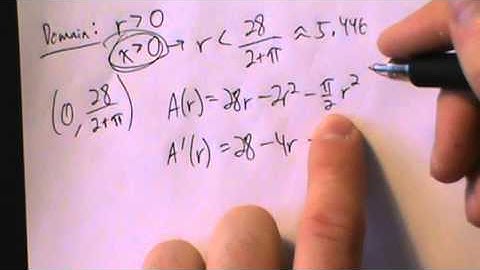 Domain: r > 0
x > 0 → r < 28/(2+π) ≈ 5.446
(0, 28/(2+π))
A(r) = 28r - 2r² - π/2 r²
A'(r) = 28 - 4r -